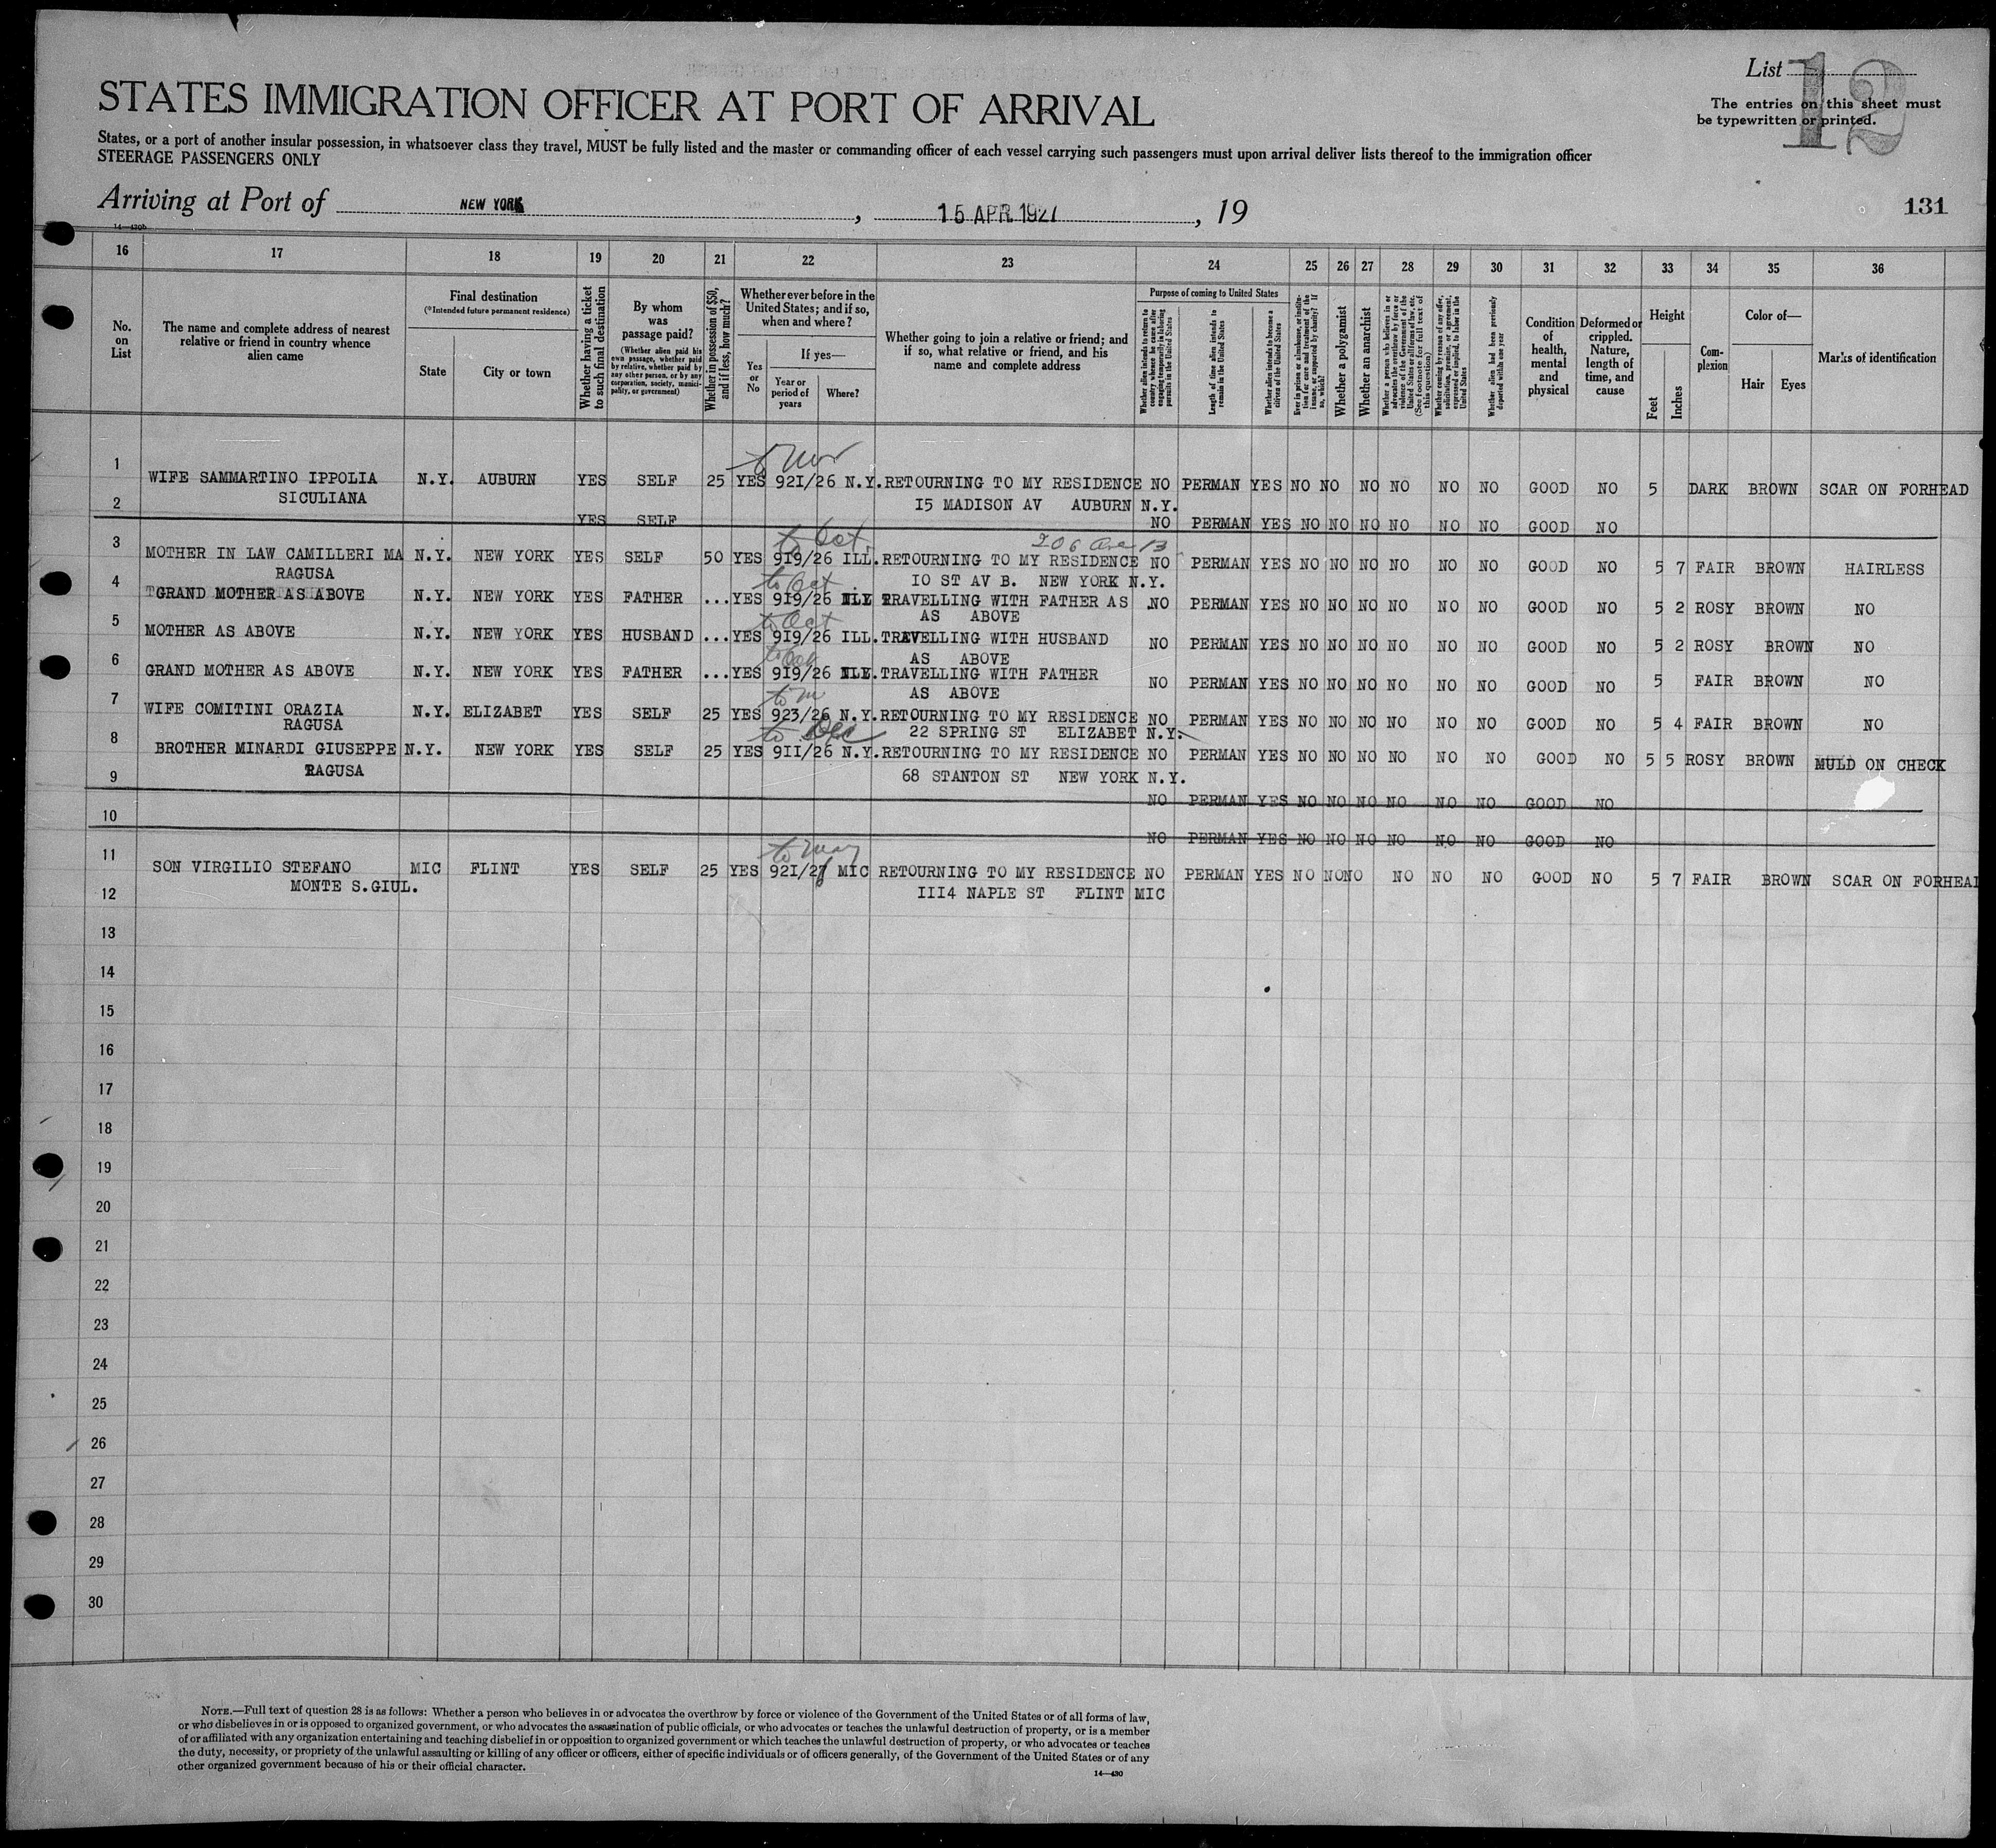 List 12
The entries on this sheet must
be typewritten or printed.
STATES IMMIGRATION OFFICER AT PORT OF ARRIVAL
States, or a port of another insular possession, in whatsoever class they travel, MUST be fully listed and the master or commanding officer of each vessel carrying such passengers must upon arrival deliver lists thereof to the immigration officer
STEERAGE PASSENGERS ONLY
Arriving at Port of NEW YORK, 15 APR 1927, 19
131
14—420b
16 17 18 19 20 21 22 23 24 25 26 27 28 29 30 31 32 33 34 35 36
No. on List
The name and complete address of nearest relative or friend in country whence alien came
Final destination
(*Intended future permanent residence)
State
City or town
Whether having a ticket to such final destination
By whom was passage paid?
(Whether alien paid his own passage, whether paid by relative, whether paid by any other person, or by any corporation, society, municipality, or government)
Whether in possession of $50, and if less, how much?
Whether ever before in the United States; and if so, when and where?
Yes or No
If yes—
Year or period of years
Where?
Whether going to join a relative or friend; and if so, what relative or friend, and his name and complete address
Purpose of coming to United States
Whether alien intends to return to country whence he came after engaging temporarily in laboring pursuits in the United States
Length of time alien intends to remain in the United States
Whether alien intends to become a citizen of the United States
Ever in prison or almshouse, or institution for care and treatment of the insane, or supported by charity? If so, which?
Whether a polygamist
Whether an anarchist
Whether a person who believes in or advocates the overthrow by force or violence of the Government of the United States or all forms of law, etc. (See footnote for full text of this question)
Whether coming by reason of any offer, solicitation, promise, or agreement, expressed or implied, to labor in the United States
Whether alien had been previously deported within one year
Condition of health, mental and physical
Deformed or crippled. Nature, length of time, and cause
Height
Feet
Inches
Complexion
Color of—
Hair
Eyes
Marks of identification
to Nov
1 WIFE SAMMARTINO IPPOLIA N.Y. AUBURN YES SELF 25 YES 92I/26 N.Y. RETOURNING TO MY RESIDENCE NO PERMAN YES NO NO NO NO NO NO GOOD NO 5 DARK BROWN SCAR ON FORHEAD
SICULIANA I5 MADISON AV AUBURN N.Y.
2 YES SELF NO PERMAN YES NO NO NO NO NO NO GOOD NO
to Oct 206 Ave B
3 MOTHER IN LAW CAMILLERI MA N.Y. NEW YORK YES SELF 50 YES 9I9/26 ILL. RETOURNING TO MY RESIDENCE NO PERMAN YES NO NO NO NO NO NO GOOD NO 5 7 FAIR BROWN HAIRLESS
RAGUSA IO ST AV B. NEW YORK N.Y.
to Oct
4 GRAND MOTHER AS ABOVE N.Y. NEW YORK YES FATHER ... YES 9I9/26 ILL TRAVELLING WITH FATHER AS NO PERMAN YES NO NO NO NO NO NO GOOD NO 5 2 ROSY BROWN NO
AS ABOVE
to Oct
5 MOTHER AS ABOVE N.Y. NEW YORK YES HUSBAND ... YES 9I9/26 ILL. TRAVELLING WITH HUSBAND NO PERMAN YES NO NO NO NO NO NO GOOD NO 5 2 ROSY BROWN NO
AS ABOVE
to Oct
6 GRAND MOTHER AS ABOVE N.Y. NEW YORK YES FATHER ... YES 9I9/26 ILL. TRAVELLING WITH FATHER NO PERMAN YES NO NO NO NO NO NO GOOD NO 5 FAIR BROWN NO
AS ABOVE
to m
7 WIFE COMITINI ORAZIA N.Y. ELIZABET YES SELF 25 YES 923/26 N.Y. RETOURNING TO MY RESIDENCE NO PERMAN YES NO NO NO NO NO NO GOOD NO 5 4 FAIR BROWN NO
RAGUSA 22 SPRING ST ELIZABET N.Y.
to Dec
8 BROTHER MINARDI GIUSEPPE N.Y. NEW YORK YES SELF 25 YES 9II/26 N.Y. RETOURNING TO MY RESIDENCE NO PERMAN YES NO NO NO NO NO NO GOOD NO 5 5 ROSY BROWN MULD ON CHECK
RAGUSA 68 STANTON ST NEW YORK N.Y.
9 NO PERMAN YES NO NO NO NO NO NO GOOD NO
10 NO PERMAN YES NO NO NO NO NO NO GOOD NO
to May
11 SON VIRGILIO STEFANO MIC FLINT YES SELF 25 YES 92I/26 MIC RETOURNING TO MY RESIDENCE NO PERMAN YES NO NO NO NO NO NO GOOD NO 5 7 FAIR BROWN SCAR ON FORHEAD
MONTE S.GIUL. III4 NAPLE ST FLINT MIC
12
13
14
15
16
17
18
19
20
21
22
23
24
25
26
27
28
29
30
NOTE.—Full text of question 28 is as follows: Whether a person who believes in or advocates the overthrow by force or violence of the Government of the United States or of all forms of law,
or who disbelieves in or is opposed to organized government, or who advocates the assassination of public officials, or who advocates or teaches the unlawful destruction of property, or is a member
of or affiliated with any organization entertaining and teaching disbelief in or opposition to organized government or which teaches the unlawful destruction of property, or who advocates or teaches
the duty, necessity, or propriety of the unlawful assaulting or killing of any officer or officers, either of specific individuals or of officers generally, of the Government of the United States or of any
other organized government because of his or their official character.
14—430